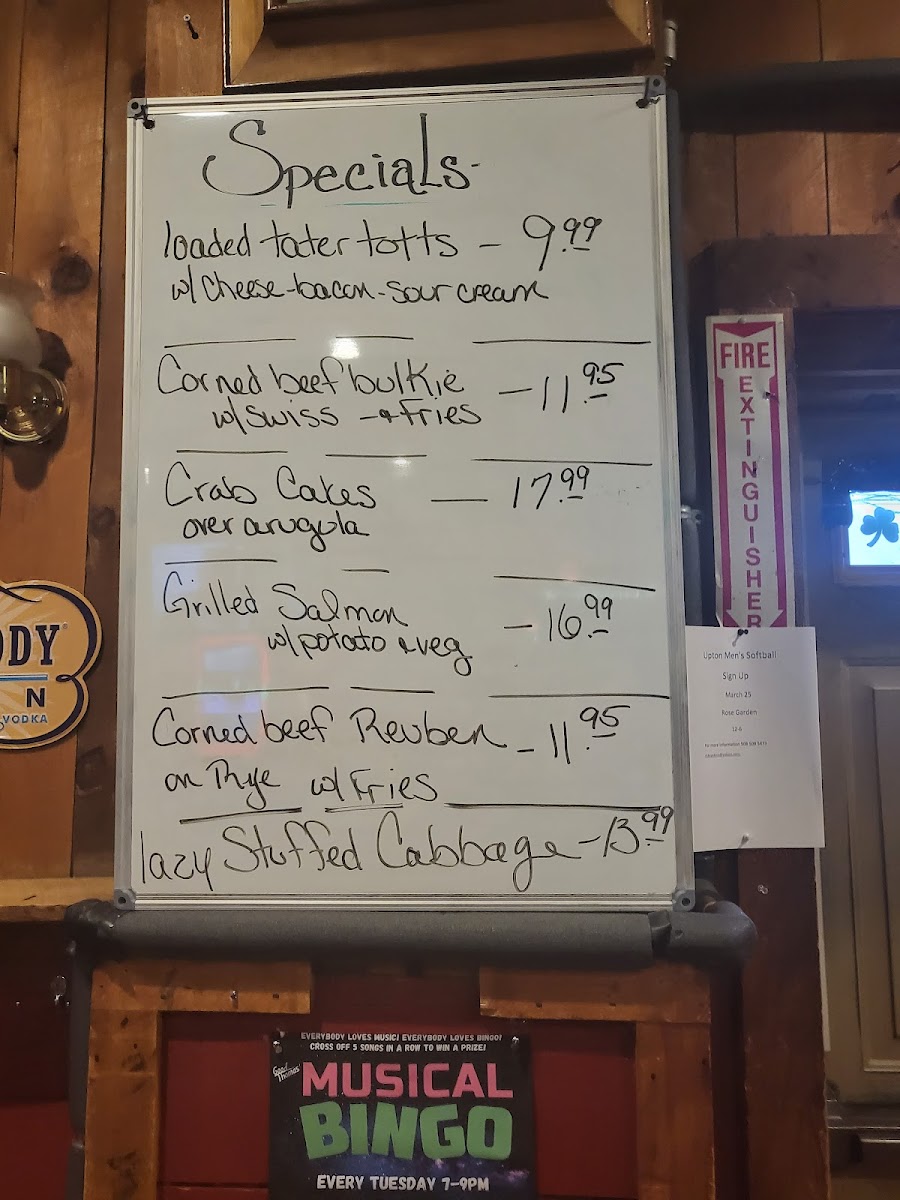 Specials-
loaded tater totts - 9.99
w/ Cheese-bacon-sour cream
Corned beef bulkie - 11.95
w/ swiss - & Fries
Crab Cakes — 17.99
over arugula
Grilled Salmon - 16.99
w/ potato & veg
Corned beef Reuben - 11.95
on Rye w/ Fries
lazy Stuffed Cabbage - 13.99
FIRE
EXTINGUISHER
Upton Men's Softball
Sign Up
March 25
Rose Garden
12-6
ODY
N
VODKA
EVERYBODY LOVES MUSIC! EVERYBODY LOVES BINGO!
CROSS OFF 5 SONGS IN A ROW TO WIN A PRIZE!
MUSICAL
BINGO
EVERY TUESDAY 7-9PM